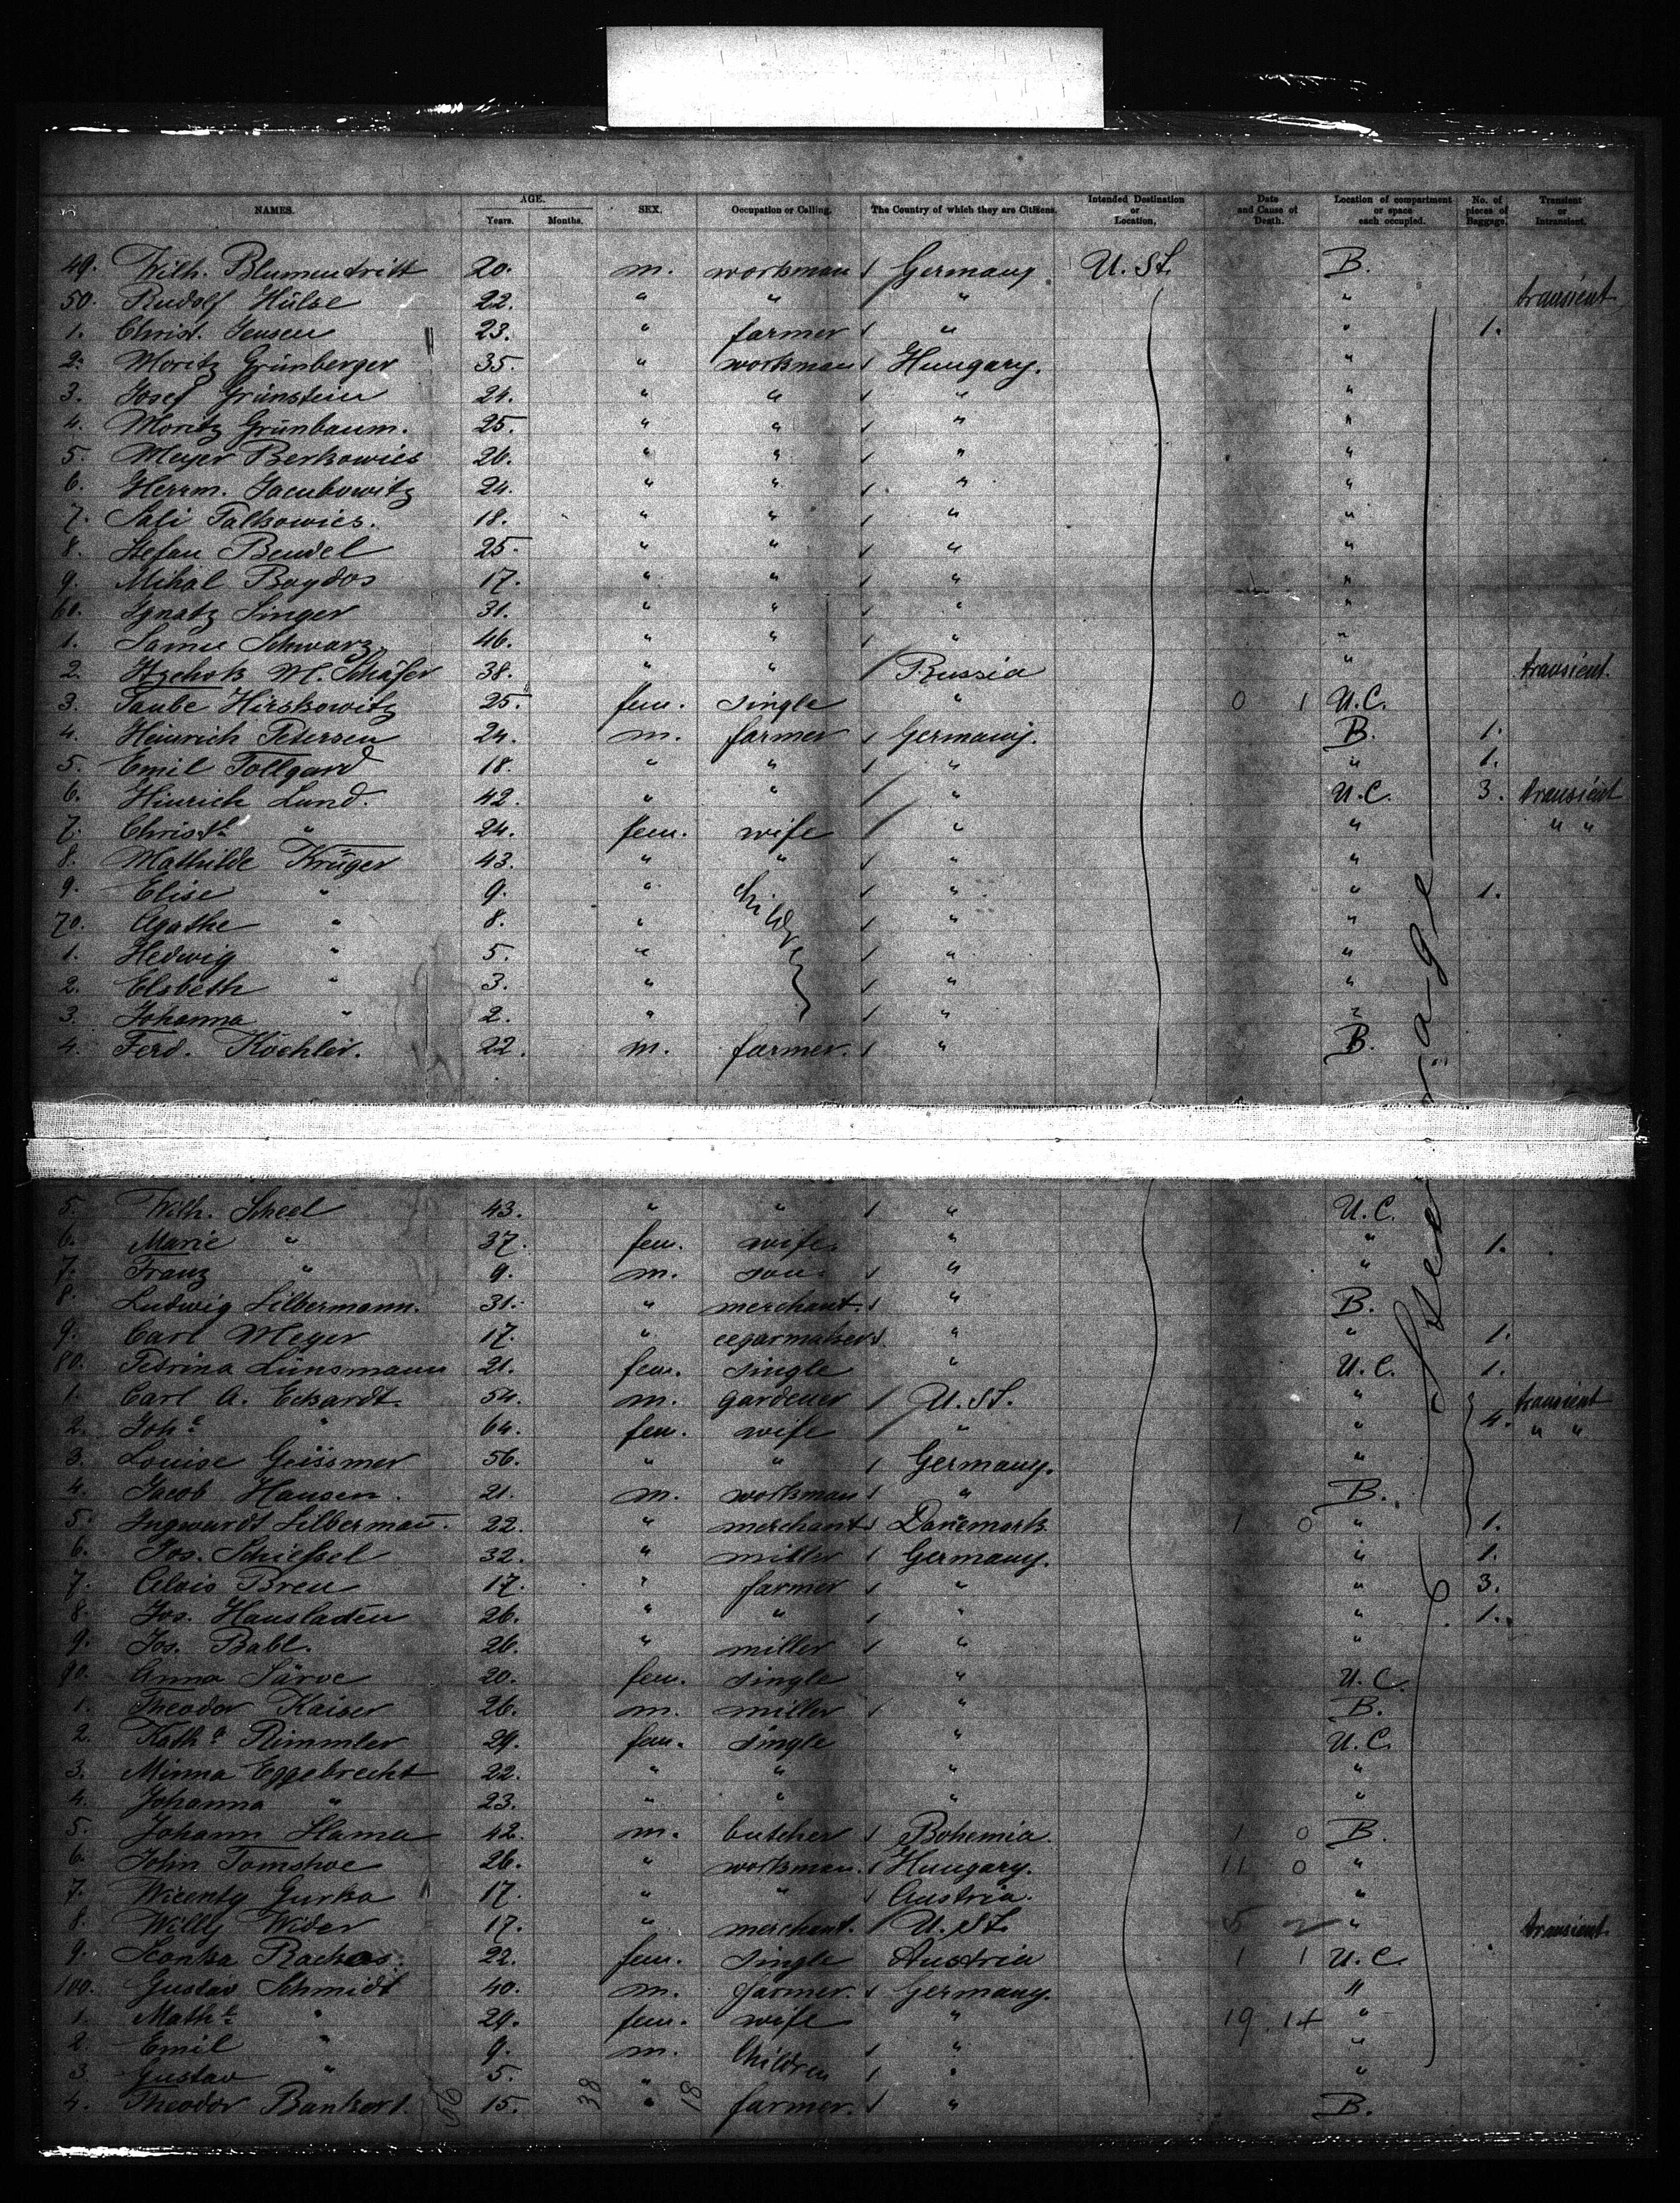 NAMES. AGE. Years. Months. SEX. Occupation or Calling. The Country of which they are Citizens. Intended Destination or Location. Date and Cause of Death. Location of compartment or space each occupied. No. of pieces of Baggage. Transient or Intransient.
49. Wilh. Blumentritt 20. m. workman Germany U. St. B.
50. Rudolf Hülse 22. " " " " transient
1. Christ. Jensen 23. " farmer " " 1.
2. Moritz Grünberger 35. " workman Hungary. "
3. Josef Grünstein 24. " " " "
4. Moritz Grünbaum. 25. " " " "
5. Meyer Berkowics 26. " " " "
6. Herrm. Jacubowitz 24. " " " "
7. Sali Falkowics. 18. " " " "
8. Stefan Bendel 25. " " " "
9. Mihal Bogdos 17. " " " "
60. Ignatz Singer 31. " " " "
1. Samu Schwarz 46. " " " "
2. M. Schäfer 38. " " Russia " transient.
3. Taube Hirskowitz 25. fem. single " 0 1 U.C.
4. Heinrich Petersen 24. m. farmer Germany. B. 1.
5. Emil Tollgard 18. " " " " 1.
6. Hinrich Lund. 42. " " " U.C. 3. transient
7. Christe " 24. fem. wife " " " "
8. Mathilde Krüger 43. " " " "
9. Elise " 9. " children " " 1.
70. Agathe " 8. " " "
1. Hedwig " 5. " " "
2. Elsbeth " 3. " " "
3. Johanna " 2. " " "
4. Ferd. Koehler. 22. m. farmer. " B.
Steerage
5. Wilh. Scheel 43. " " " U.C.
6. Marie " 37. fem. wife. " " 1.
7. Franz " 9. m. son. " "
8. Ludwig Silbermann. 31. " merchant. " B.
9. Carl Meyer 17. " cegarmaker " " 1.
80. Petrina Lünsmann 21. fem. single " U.C. 1.
1. Carl A. Eckardt. 54. m. gardener U. St. " 4. transient
2. Johe " 64. fem. wife " " " "
3. Louise Geissmer 56. " " Germany. "
4. Jacob Hansen. 21. m. workman " B.
5. Ingwardt Silbermañ. 22. " merchant Danemark 1 0 " 1.
6. Jos. Schiessel 32. " miller Germany. " 1.
7. Alois Breu 17. " farmer " " 3.
8. Jos. Hausladen 26. " " " " 1.
9. Jos. Babl. 26. " miller " "
90. Anna Särve 20. fem. single " U.C.
1. Theodor Kaiser 26. m. miller " B.
2. Katha Rimmler 29. fem. single " U.C.
3. Minna Eggebrecht 22. " " " "
4. Johanna " 23. " " " "
5. Johann Slama 42. m. butcher Bohemia. 1 0 B.
6. John Tomskoe 26. " workman. Hungary. 11 0 "
7. Wicenty Gurka 17. " " Austria. "
8. Willy Wider 17. " merchant. U. St. 5 2 " transient
9. Rachos 22. fem. single Austria 1 1 U.C.
100. Gustav Schmidt 40. m. farmer. Germany. "
1. Mathe " 29. fem. wife " 19 14 "
2. Emil " 9. m. Children " "
3. Gustav " 5. " " "
4. Theodor Bankert. 56 15. 38 " 18 farmer. " B.